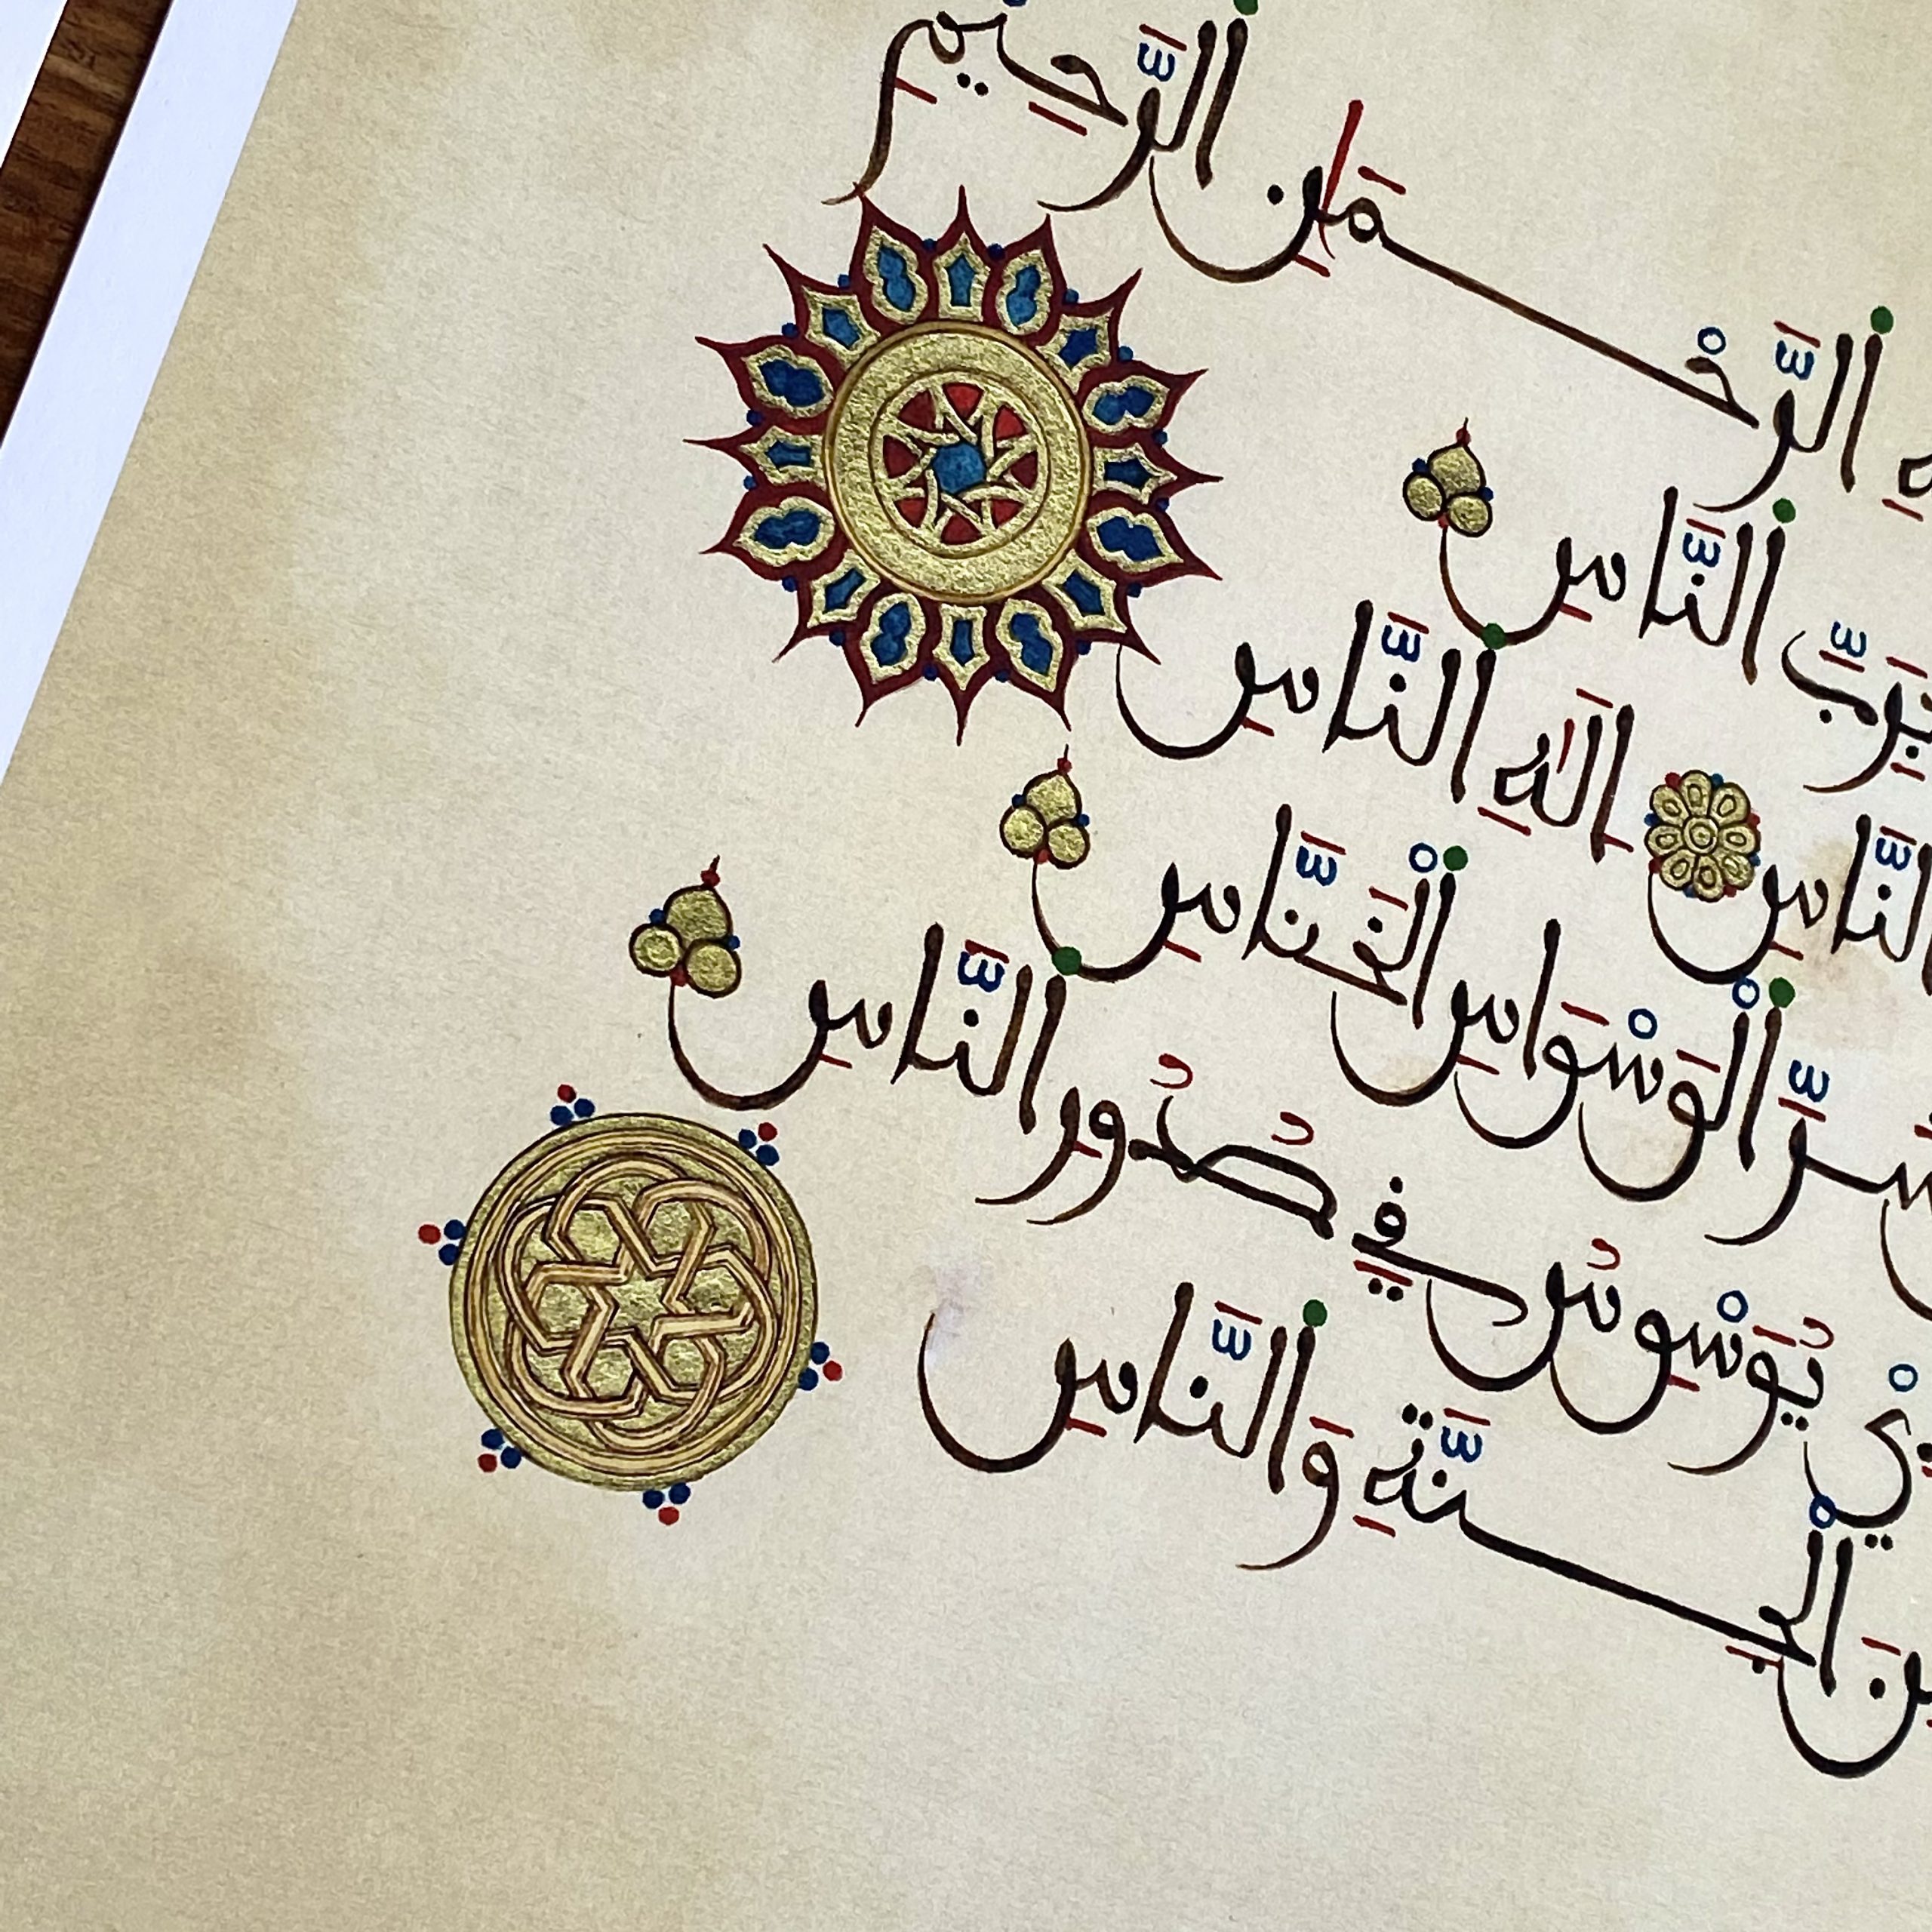 الرَّحْمَٰنِ الرَّحِيمِ
بِرَبِّ النَّاسِ
النَّاسِ إِلَٰهِ النَّاسِ
شَرِّ الْوَسْوَاسِ الْخَنَّاسِ
يُوَسْوِسُ فِي صُدُورِ النَّاسِ
مِنَ الْجِنَّةِ وَالنَّاسِ